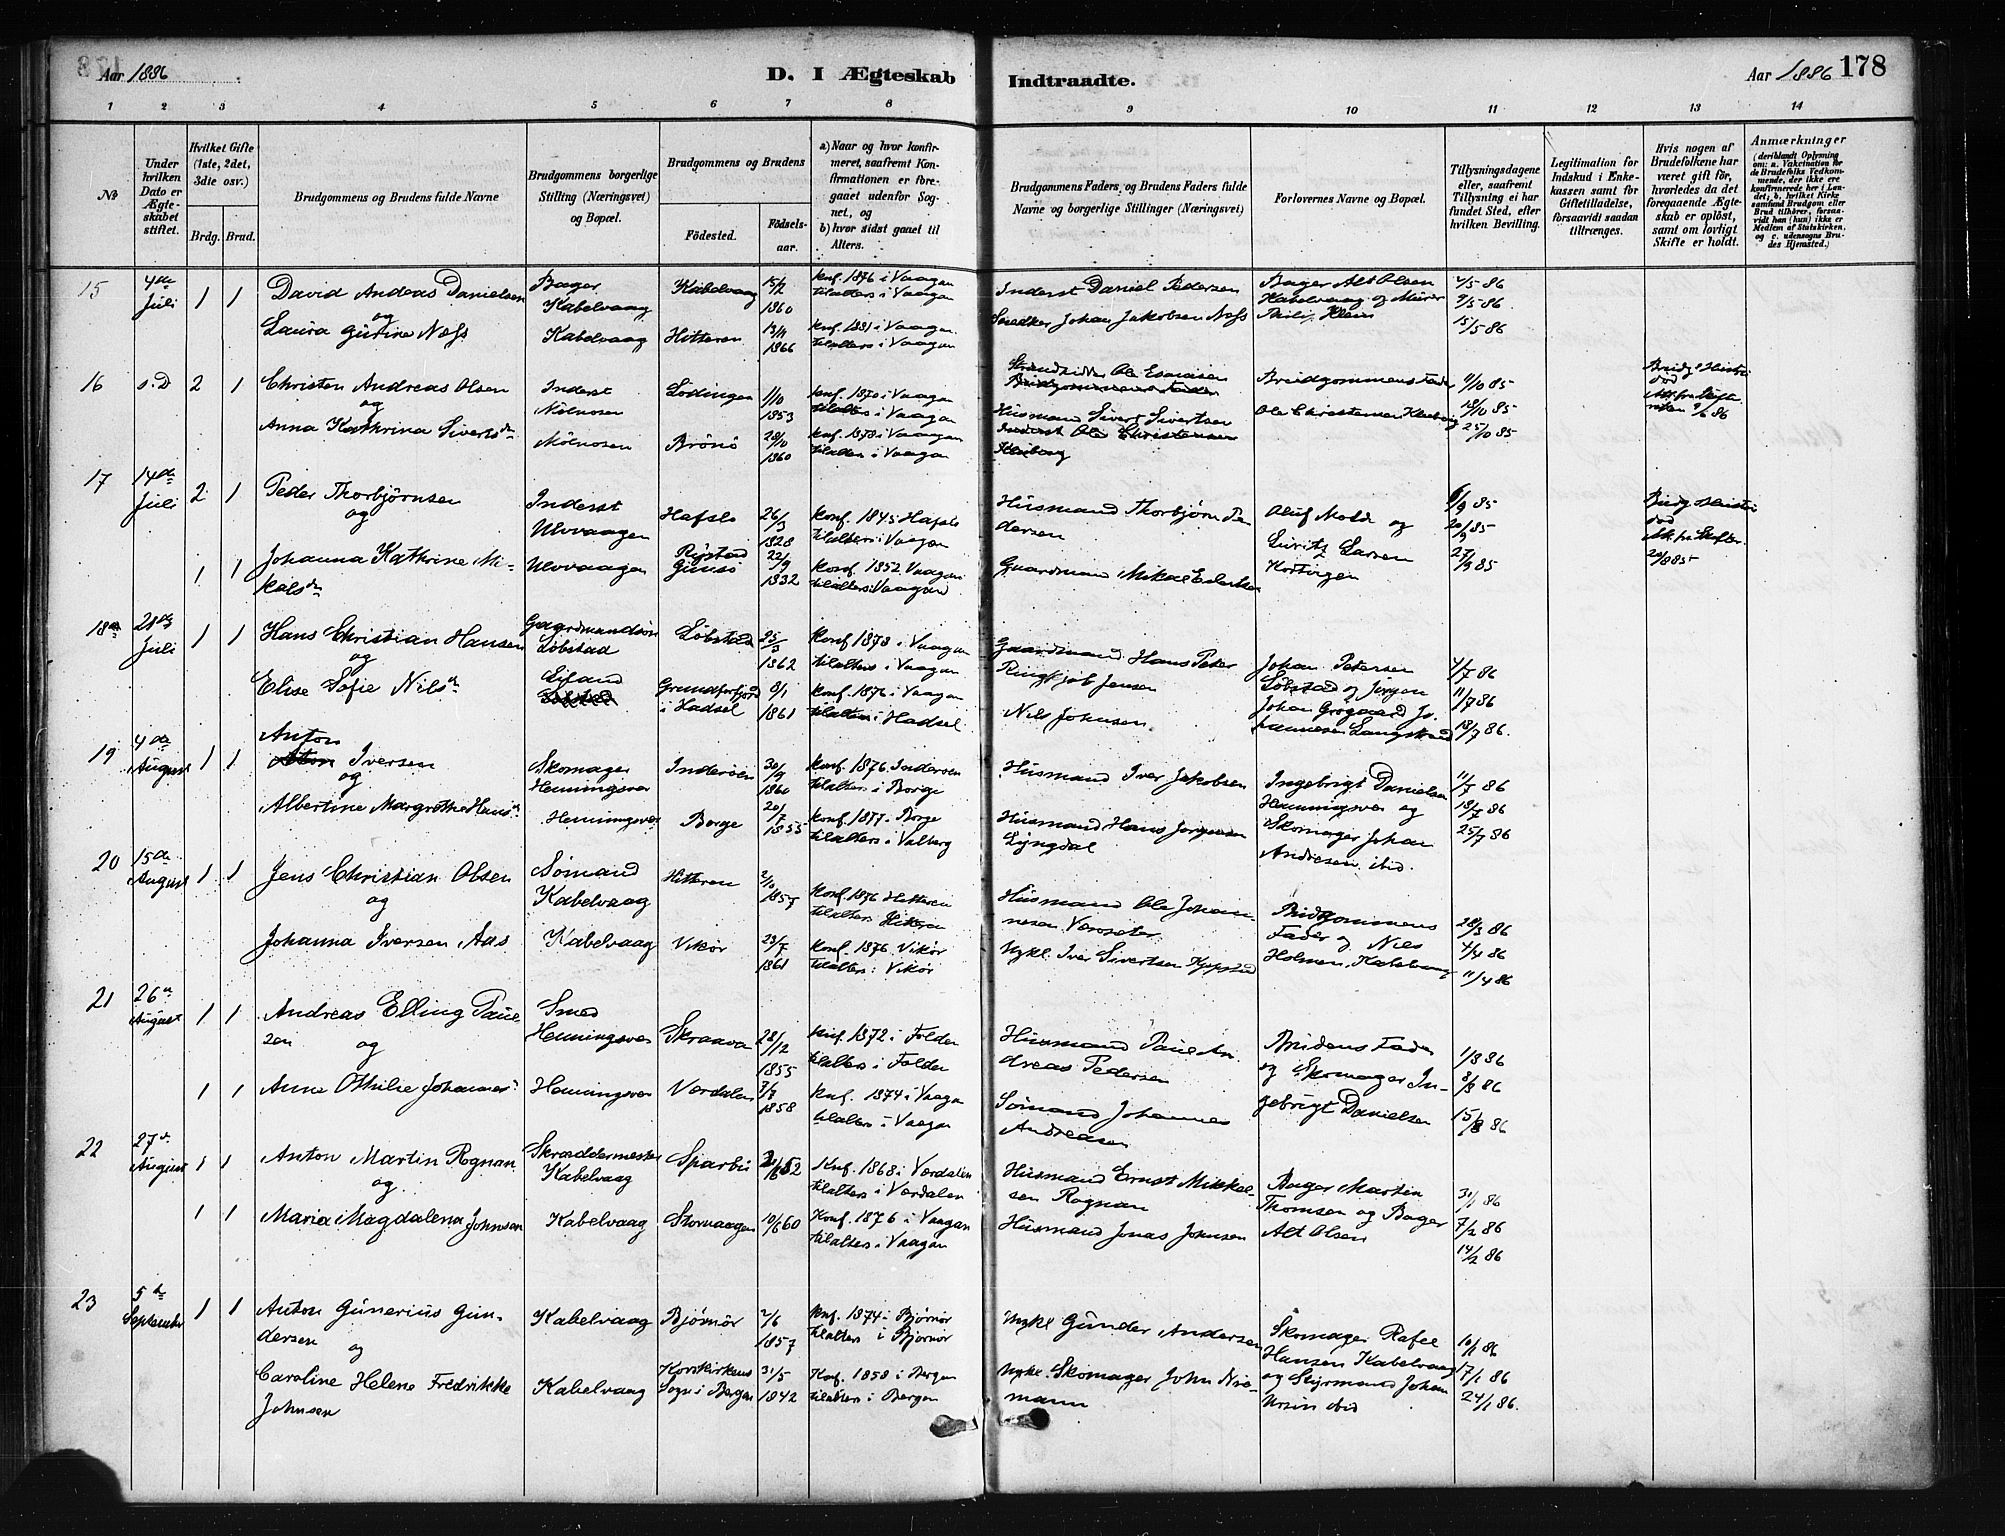 Aar 1886
D. I Ægteskab
Indtraadte.
Aar 1886 178
1 2 3 4 5 6 7 8 9 10 11 12 13 14
No
Under hvilken Dato er Ægteskabet stiftet.
Hvilket Gifte (1ste, 2det, 3die osv.)
Brdg. Brud.
Brudgommens og Brudens fulde Navne
Brudgommens borgerlige Stilling (Næringsvei) og Bopæl.
Brudgommens og Brudens
Fødested. Fødselsaar.
a) Naar og hvor konfirmeret, saafremt Konfirmationen er foregaaet udenfor Sognet, og
b) hvor sidst gaaet til Alters.
Brudgommens Faders og Brudens Faders fulde Navne og borgerlige Stillinger (Næringsvei)
Forlovernes Navne og Bopæl.
Tillysningsdagene eller, saafremt Tillysning ei har fundet Sted, efter hvilken Bevilling.
Legitimation for Indskud i Enkekassen samt for Giftetilladelse, forsaavidt saadan tiltrænges.
Hvis nogen af Brudefolkene har været gift før, hvorledes da det foregaaende Ægteskab er opløst, samt om lovligt Skifte er holdt.
Anmærkninger
(deriblandt Oplysning om: a. Vakcination for de Brudefolks Vedkommende, der ikke ere konfirmerede her i Landet; b. hvilket Kirkesamfund Brudgom eller Brud tilhører, forsaavidt han (hun) ikke er Medlem af Statskirken, og c. udensogns Brudes Hjemsted.)
15 4de Juli 1 1 David Andreas Danielsen og Bager Kabelvaag Kabelvaag 15/2 1860 knf. 1876 i Vaagan tilalters i Vaagan Inderst Daniel Pedersen Bager Alt Olsen Kabelvaag og Murer 2/5 86 9/5 86
Laura Gurine Næss Kabelvaag Hitteren 13/11 1866 knf. 1881 i Vaagan tilalters i Vaagan Snedker Johan Jakobsen Næss Philip Klein 15/5 86
16 s.D 2 1 Christen Andreas Olsen og Inderst Mølnosen Lødingen 1/10 1853 knf. 1870 i Vaagan tilalters i Vaagan Strandsidder Ole Brudgommens Fader Brudgommens Fader 11/10 85 18/10 85 Brudg. Hustru død
Anna Kathrina Siverts dr Mølnosen Brønø 28/10 1860 knf. 1878 i Vaagan tilalters i Vaagan Husmand Sivert Sivertsen Inderst Ole Christensen Kleiborg Ole Christensen Kleiborg 25/10 85
17 14de Juli 2 1 Peder Thorbjørnsen og Inderst Ulvvaagen Hafslo 26/3 1828 konf. 1845 i Hafslo tilalters i Vaagan Husmand Thorbjørn Pedersen Oluf Molde og 6/9 85 20/9 85 Brudg. Hustru død
1 1 Johanna Kathrine Mikals dr Ulvvaagen Gimsø 22/9 1832 konf. 1852 Vaagan tilalters i Vaagan Gaardmand Mikal Lauritz Larsen Kortvigen 27/9 85
18 28de Juli 1 1 Hans Christian Hansen og Gaardmandssøn Løbstad Løbstad 25/3 1862 konf 1878 i Vaagan tilalters i Vaagan Gaardmand Hans Peter Ringkjøb Jensen Johan Petersen Løbstad og Jørgen 4/7 86 11/7 86
Elise Sofie Nils dr Grundforfjord i Hadsel 8/1 1861 konf. 1876 i Vaagan tilalters i Hadsel Nils Johnsen Johan Grøgaard Johannesen 18/7 86
19 4de August 1 1 Anton Iversen og Skomager Henningsvær Inderøen 30/9 1860 konf. 1876. Inderøen tilalters i Borge Husmand Iver Jakobsen Ingebrigt Danielsen Henningsvær og 11/7 86 18/7 86
Albertine Margrethe Hans dr Henningsvær Borge 20/7 1855 konf. 1871. Borge tilalters i Valberg Husmand Hans Jørgensen Lyngdal Skomager Johan Andresen ibid. 25/7 86
20 15de August 1 1 Jens Christian Olsen og Sømand Kabelvaag Hitteren 2/10 1857 konf 1876 Hitteren tilalters Hitteren Husmand Ole Johannesen Brudgommens Fader og Nils 28/3 86 4/4 86
Johanna Iversen Aas Kabelvaag Vikør 23/7 1861 konf. 1876. Vikør tilalters i Vikør Uykl. Iver Sivertsen Holmen, Kabelvaag 11/4 86
21 26de August 1 1 Andreas Elling Paulsen og Smed Henningsvær Skraava 28/12 1855 knf. 1872 i Folden tilalters i Folden Husmand Paul Andreas Pedersen Brudens Fader og Skomager Ingebrigt Danielsen 1/8 86 8/8 86
1 1 Anne Othilie Johannes dr Henningsvær Værdalen 7/7 1858 knf. 1874 i Vaagan tilalters i Vaagan Sømand Johannes Andreasen 15/8 86
22 27de August 1 1 Anton Martin Rognan og Skræddermester Kabelvaag Sparbu 52 Knf. 1868 i Værdalen tilalters i Værdalen Husmand Ernst Mikkelsen Rognan Bager Martin Thomsen og Bager 31/1 86 7/2 86
1 1 Maria Magdalena Johnsen Kabelvaag Storvaagen 10/6 60 Konf. 1876 i Vaagan tilalters i Vaagan Husmand Jonas Johnsen Alt Olsen 14/2 86
23 5te September 1 1 Anton Gunerius Gundersen og Kabelvaag Bjørnør 2/6 1857 knf. 1874 i Bjørnør tilalters i Bjørnør Uykl Gunder Andersen Skomager Rafel Hansen Kabelvaag 10/1 86 17/1 86
Caroline Helene Fredrikke Johnsen Kabelvaag Korskirkens Sogn i Bergen 31/5 1842 Knf. 1858 i Bergen tilalters i Bergen Uykl. Skomager John Niemann og Styrmand Johan ibid 24/1 86.